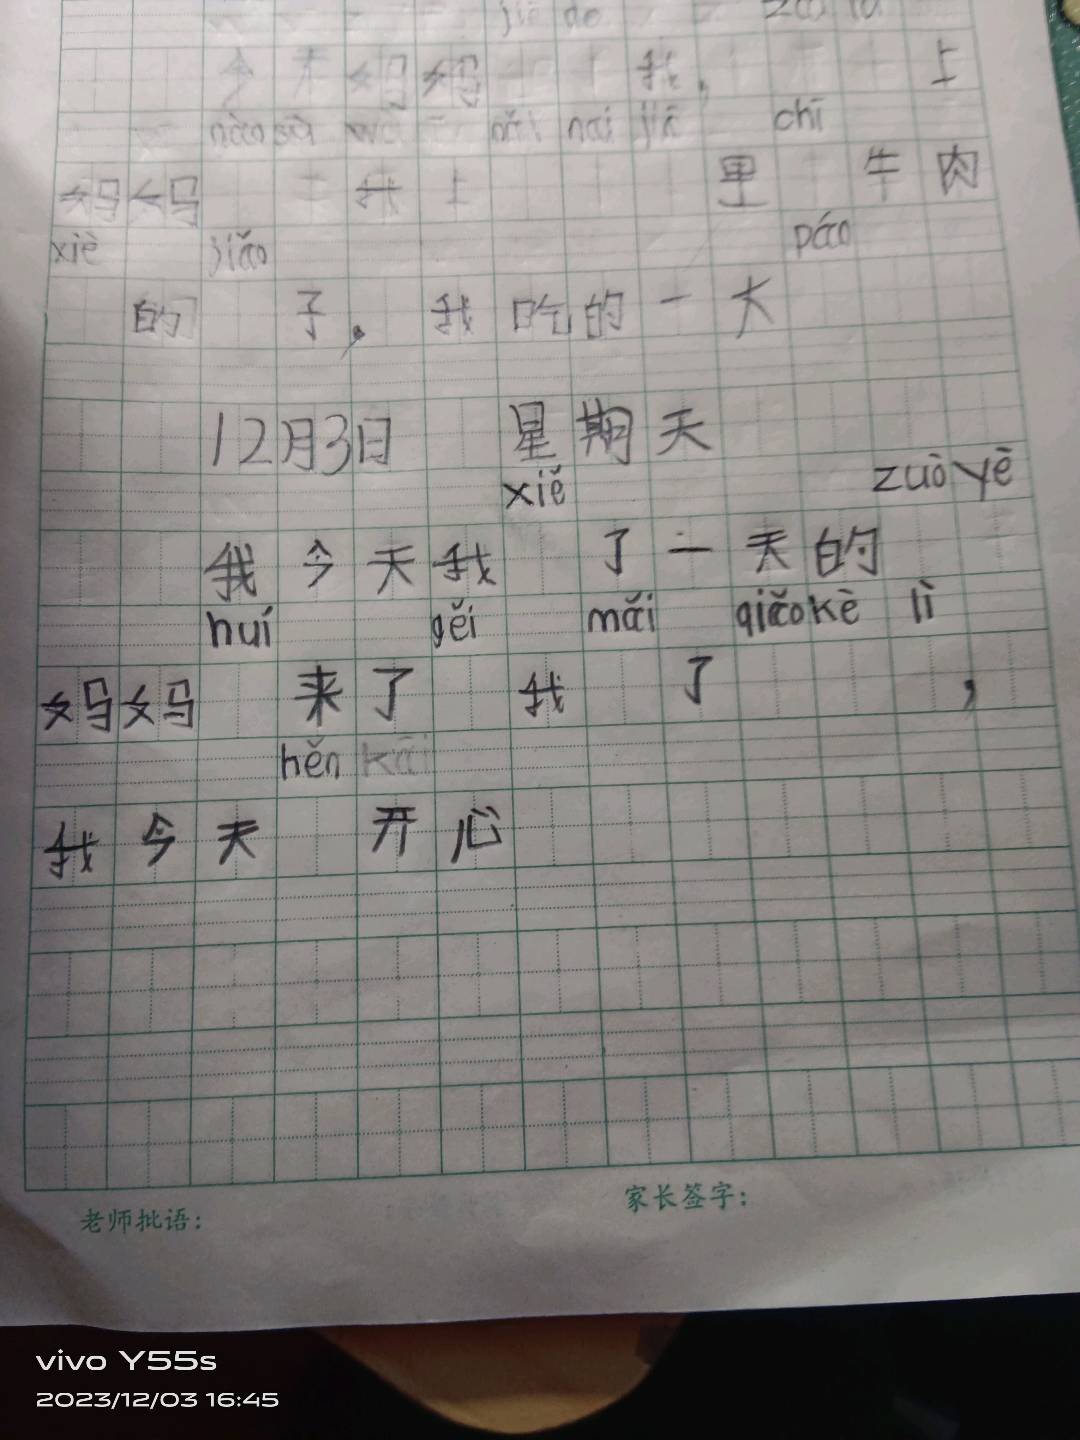 jiē de
今天妈妈 我, 上
nǎi nai jiā chī
妈妈 我上 里 牛肉
xiè jiǎo páo
的 子, 我吃的一大
12月3日 星期天
xiě zuò yè
我今天我 了一天的
huí gěi mǎi qiǎo kè lì
妈妈 来了 我 了 ,
hěn kāi
我今天 开心
老师批语: 家长签字:
vivo Y55s
2023/12/03 16:45